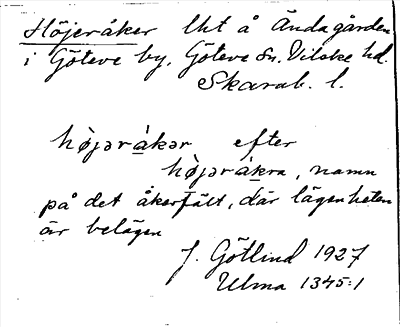 Höjeråker lht å Ändagården
i Göteve by, Göteve sn. Vilske hd.
Skarab. l.
hø̀jəråkər efter
hø̀jəråkra, namn
på det åkerfält, där lägenheten
är belägen
J. Götlind 1927
Ulma 1345:1